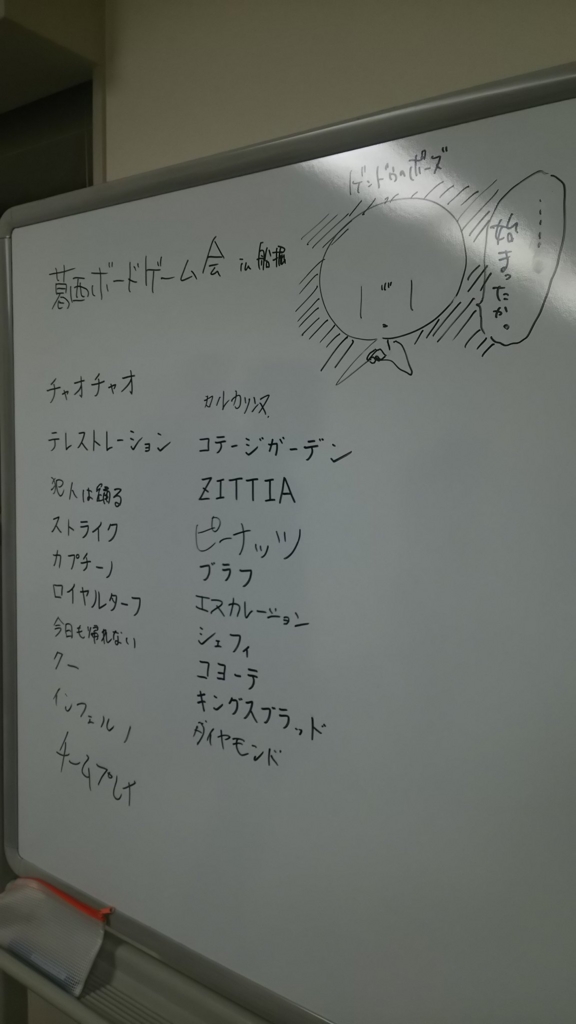 葛西ボードゲーム会 in 船堀
ゲンドウのポーズ
……始まったか。
チャオチャオ
テレストレーション
犯人は踊る
ストライク
カプチーノ
ロイヤルターフ
今日も帰れない
クー
インフェルノ
チームプレイ
カルカソンヌ
コテージガーデン
ZITTIA
ピーナッツ
ブラフ
エスカレーション
シェフィ
コヨーテ
キングスブラッド
ダイヤモンド